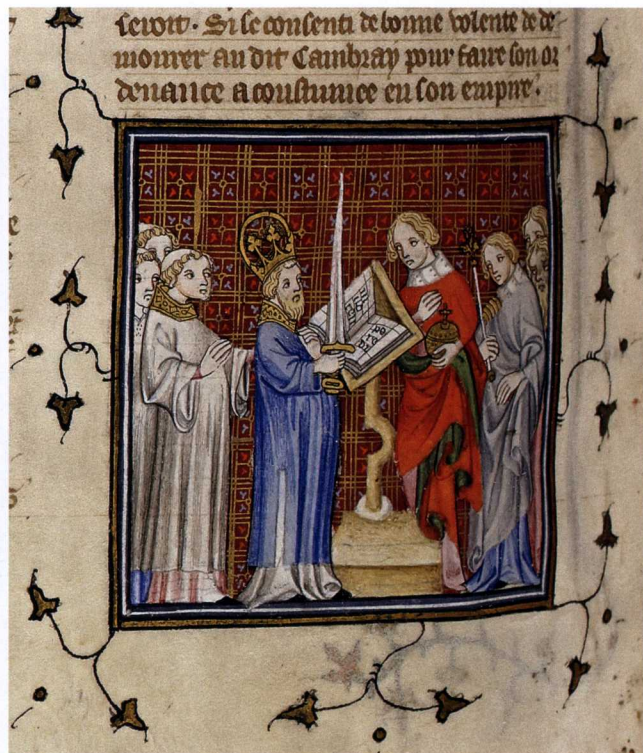 seroit. Si se consenti de bonne volente de de
mourer au dit Cambray pour faire son or
denance acoustumee en son empire.